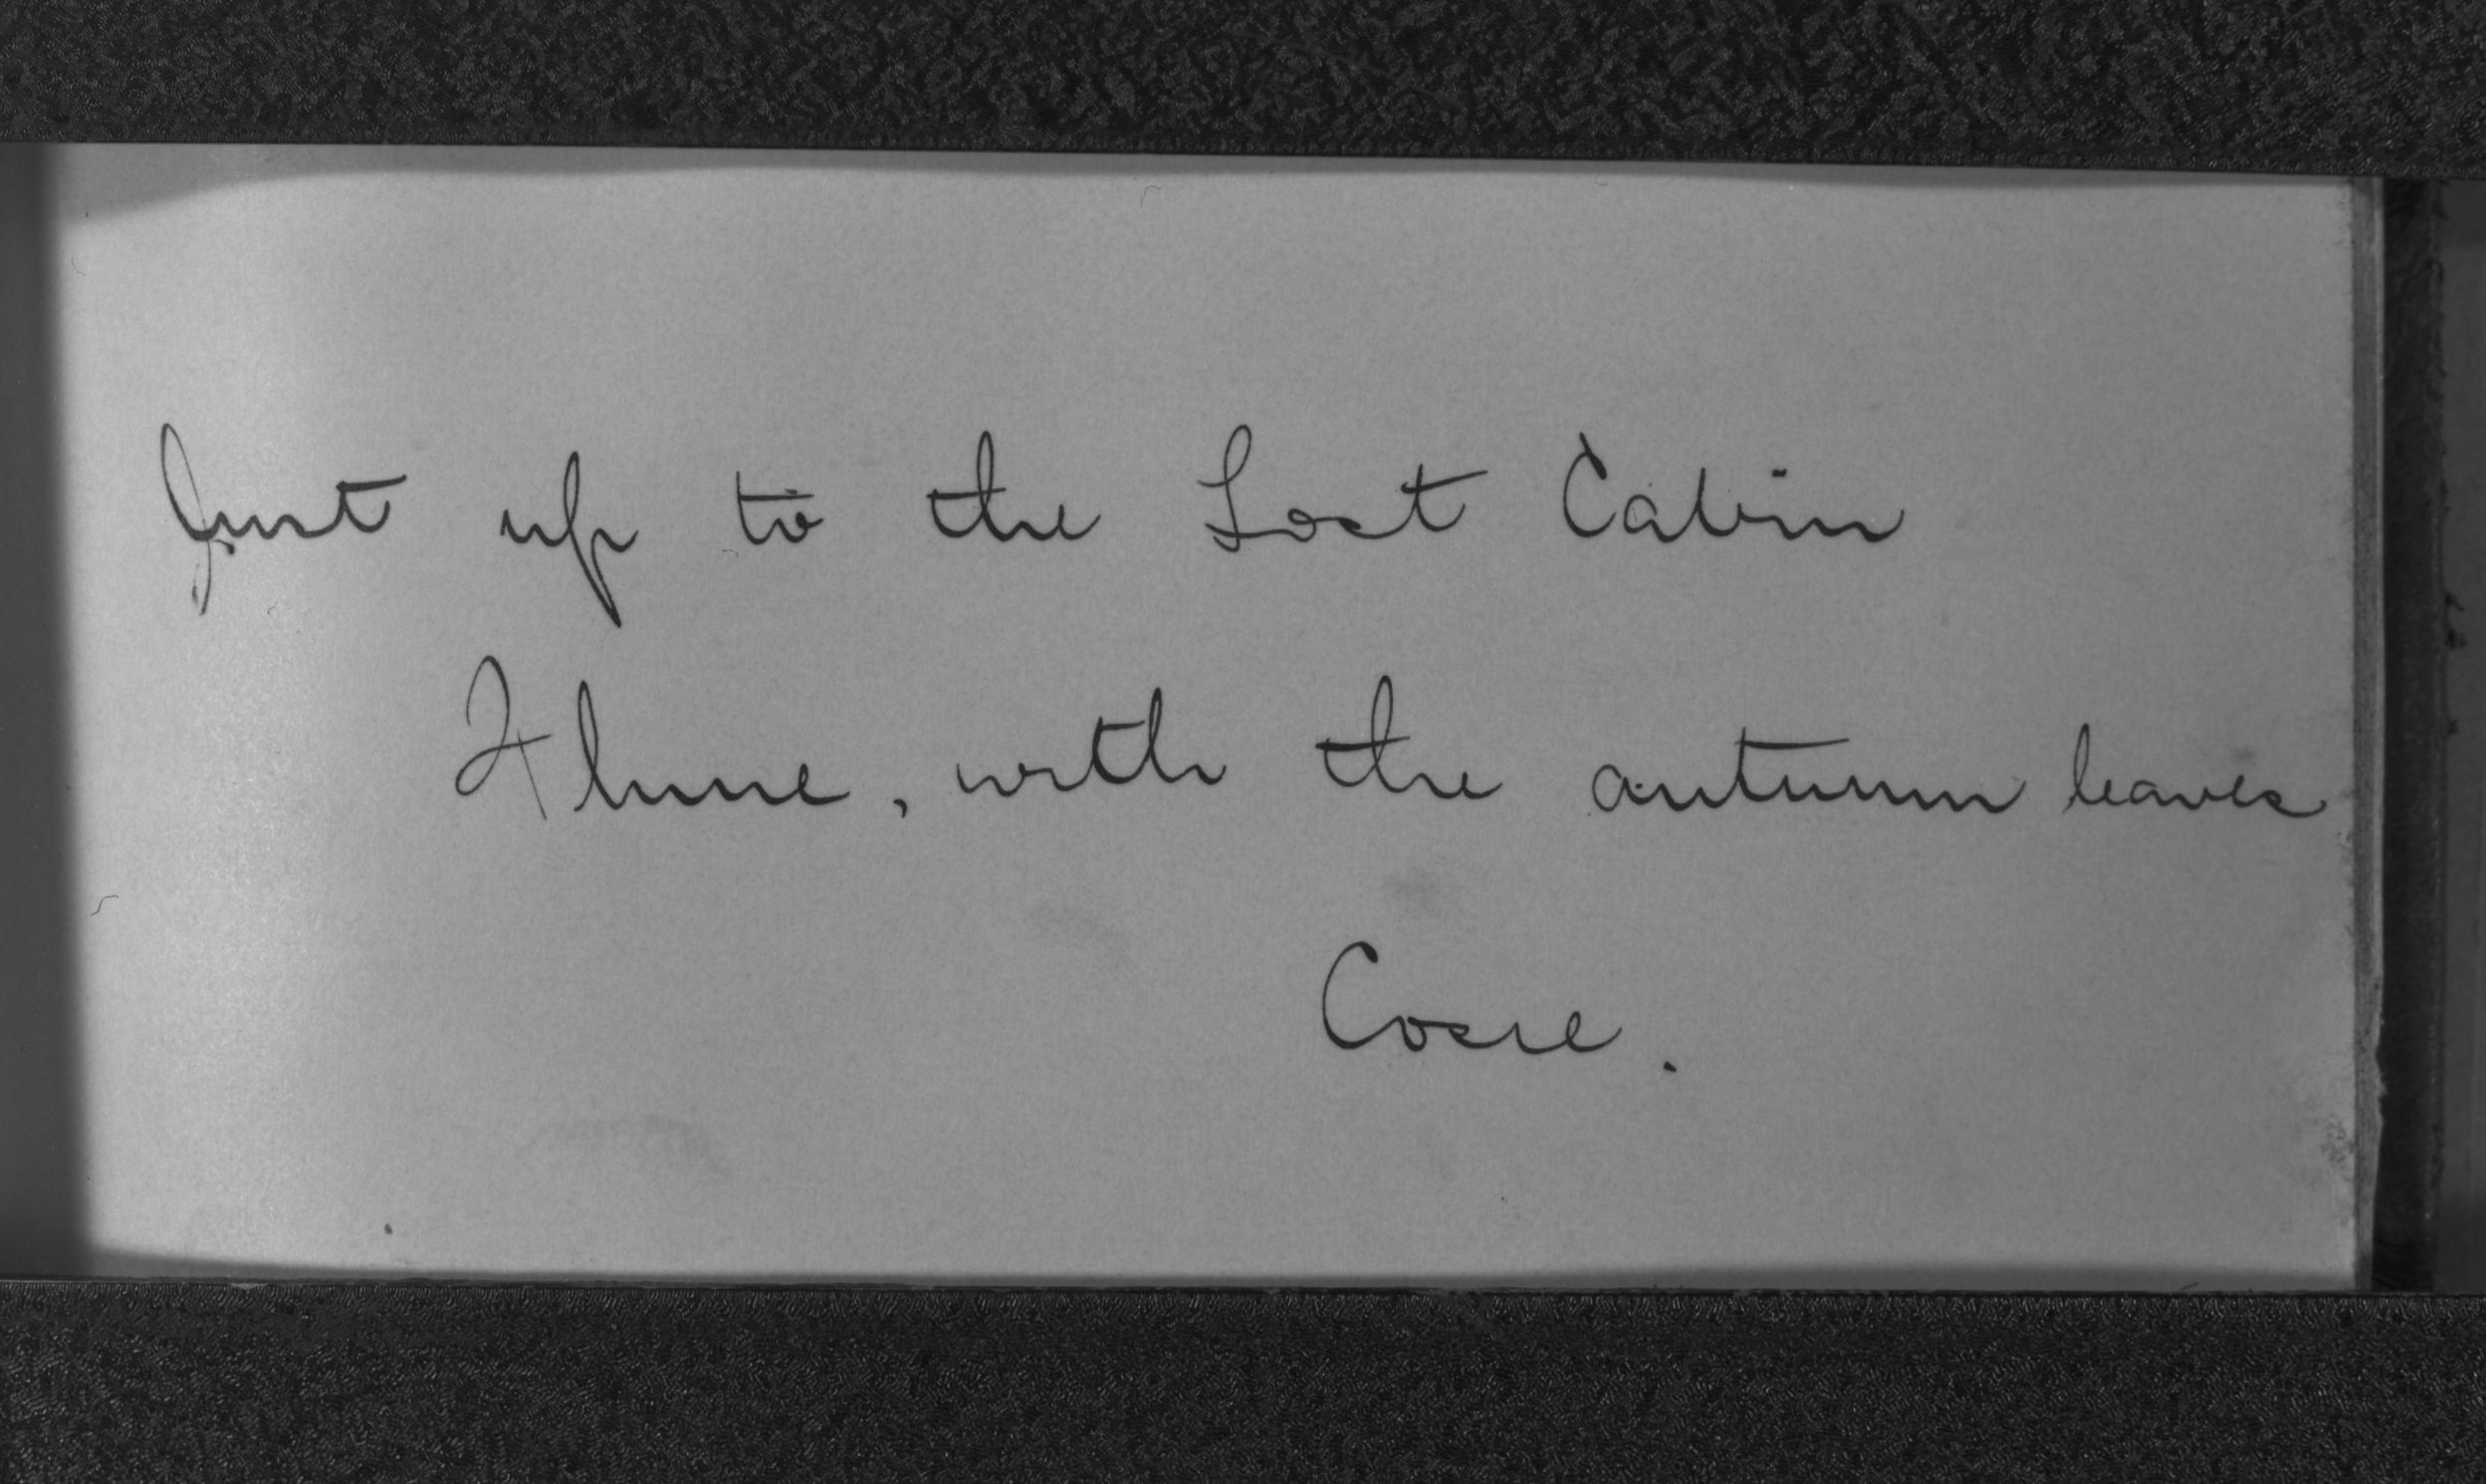 Just up to the Lost Cabin
Flume, with the autumn leaves
Cosie.